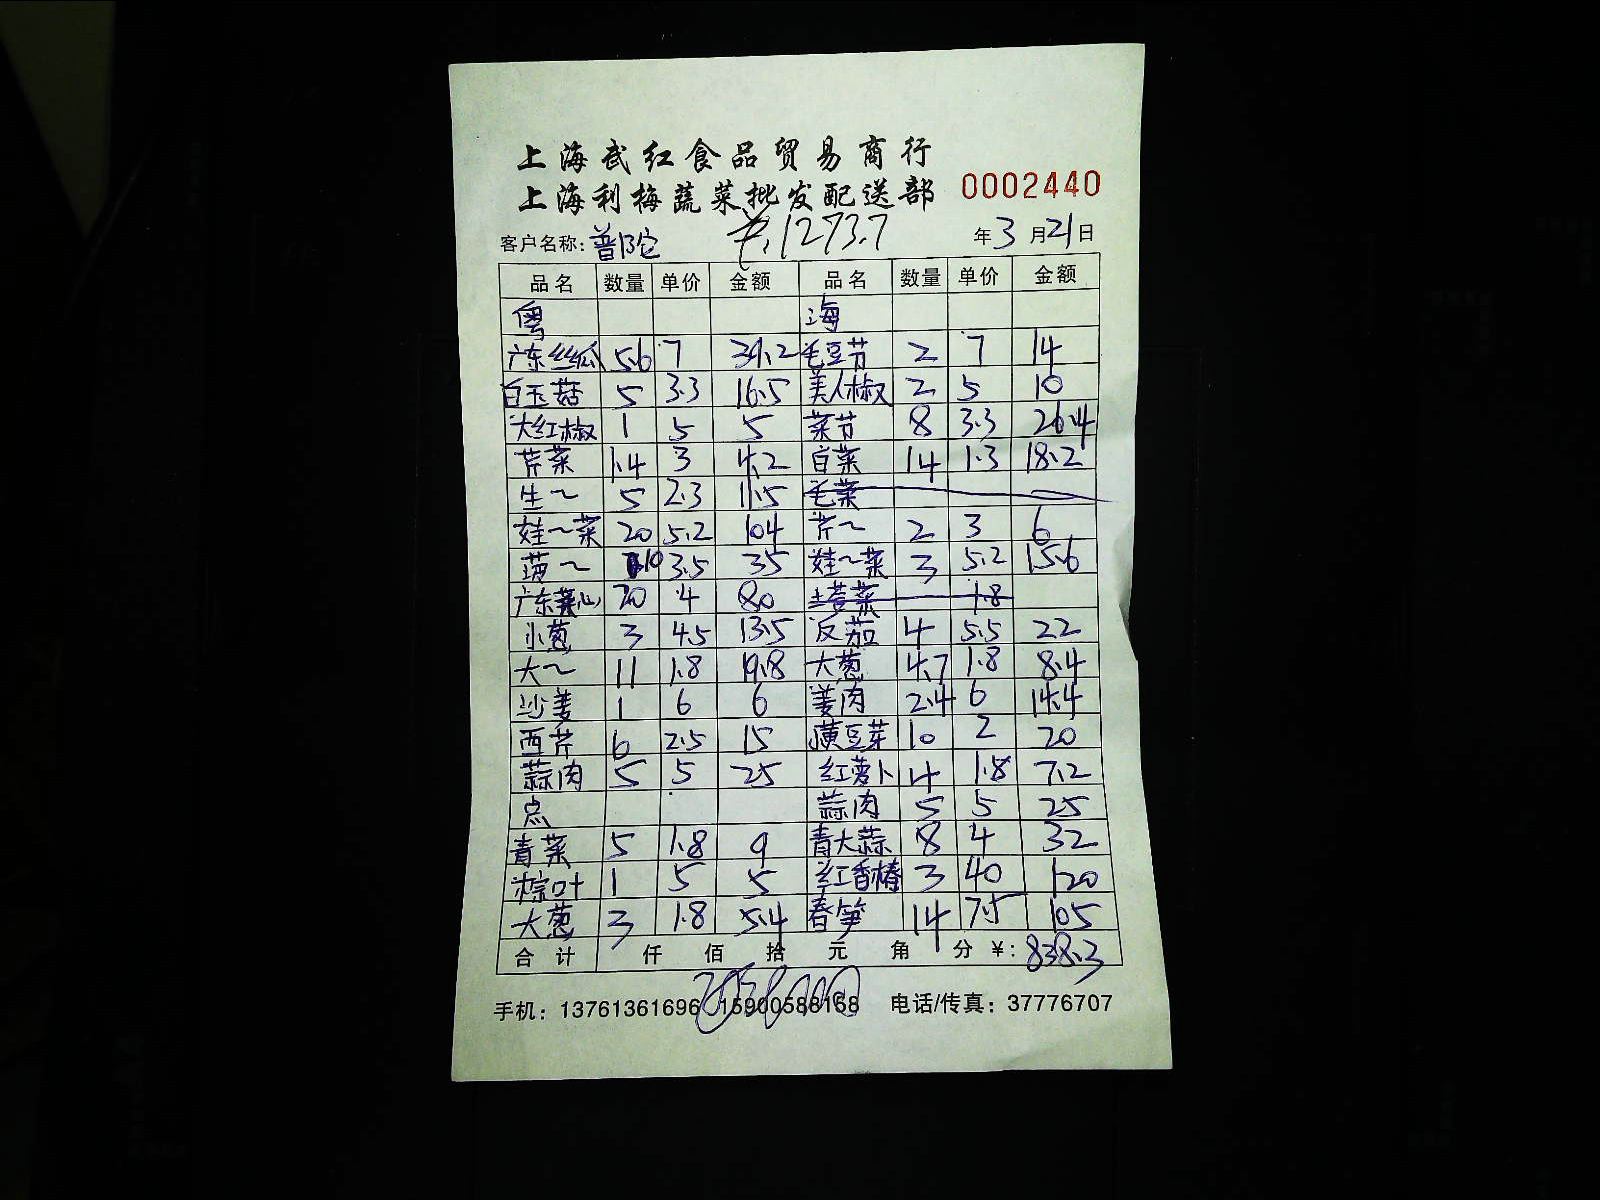 上海武红食品贸易商行
上海利梅蔬菜批发配送部 0002440
客户名称: 普陀 ¥.1273.7 年3月21日
品名 数量 单价 金额 品名 数量 单价 金额
粤 海
广东丝瓜 5.6 7 39.2 毛豆节 2 7 14
白玉菇 5 3.3 16.5 美人椒 2 5 10
大红椒 1 5 5 菜节 8 3.3 26.4
芹菜 1.4 3 4.2 白菜 14 1.3 18.2
生~ 5 2.3 11.5 毛菜
娃~菜 20 5.2 104 芹~ 2 3 6
10 3.5 35 娃~菜 3 5.2 15.6
广东菜心 20 4 80 塔菜 1.8
小葱 3 4.5 13.5 反茄 4 5.5 22
大~ 11 1.8 19.8 大葱 4.7 1.8 8.4
沙姜 1 6 6 姜肉 2.4 6 14.4
西芹 6 2.5 15 黄豆芽 10 2 20
蒜肉 5 5 25 红萝卜 4 1.8 7.2
点 蒜肉 5 5 25
青菜 5 1.8 9 青大蒜 8 4 32
粽叶 1 5 5 红香椿 3 40 120
大葱 3 1.8 5.4 春笋 14 7.5 105
合计 仟 佰 拾 元 角 分 ¥: 838.3
手机: 13761361696 15900588168 电话/传真: 37776707